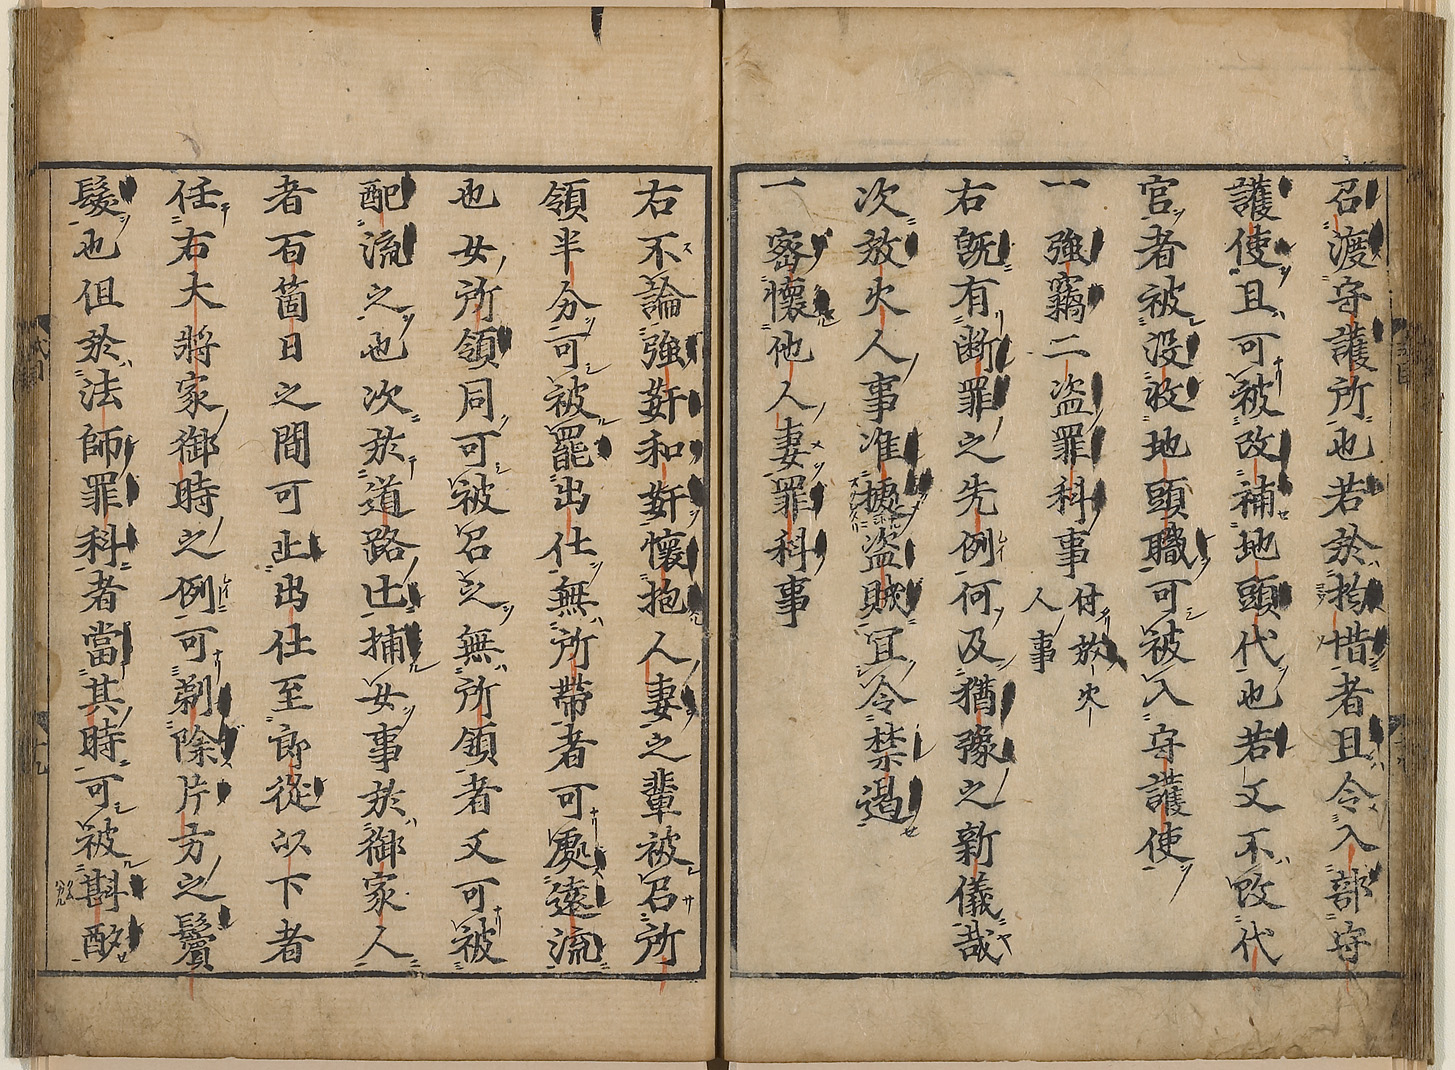 召渡守護所也若於拘惜者且令入部守
護使且可被改補地頭代也若又不改代
官者被没收地頭職可被入守護使
一強竊二盗罪科事付放火
人事
右既有断罪之先例何及猶豫之新儀哉
次放火人事准據盗賊冝令禁遏
一密懷他人妻罪科事
右不論強奸和奸懷抱人妻之輩被召所
領半分可被罷出仕無所帶者可處遠流
也女所領同可被召之無所領者又可被
配流之也次於道路辻捕女事於御家人
者百箇日之間可止出仕至郎從以下者
任右大將家御時之例可剃除片方之鬢
髮也但於法師罪科者當其時可被斟酌